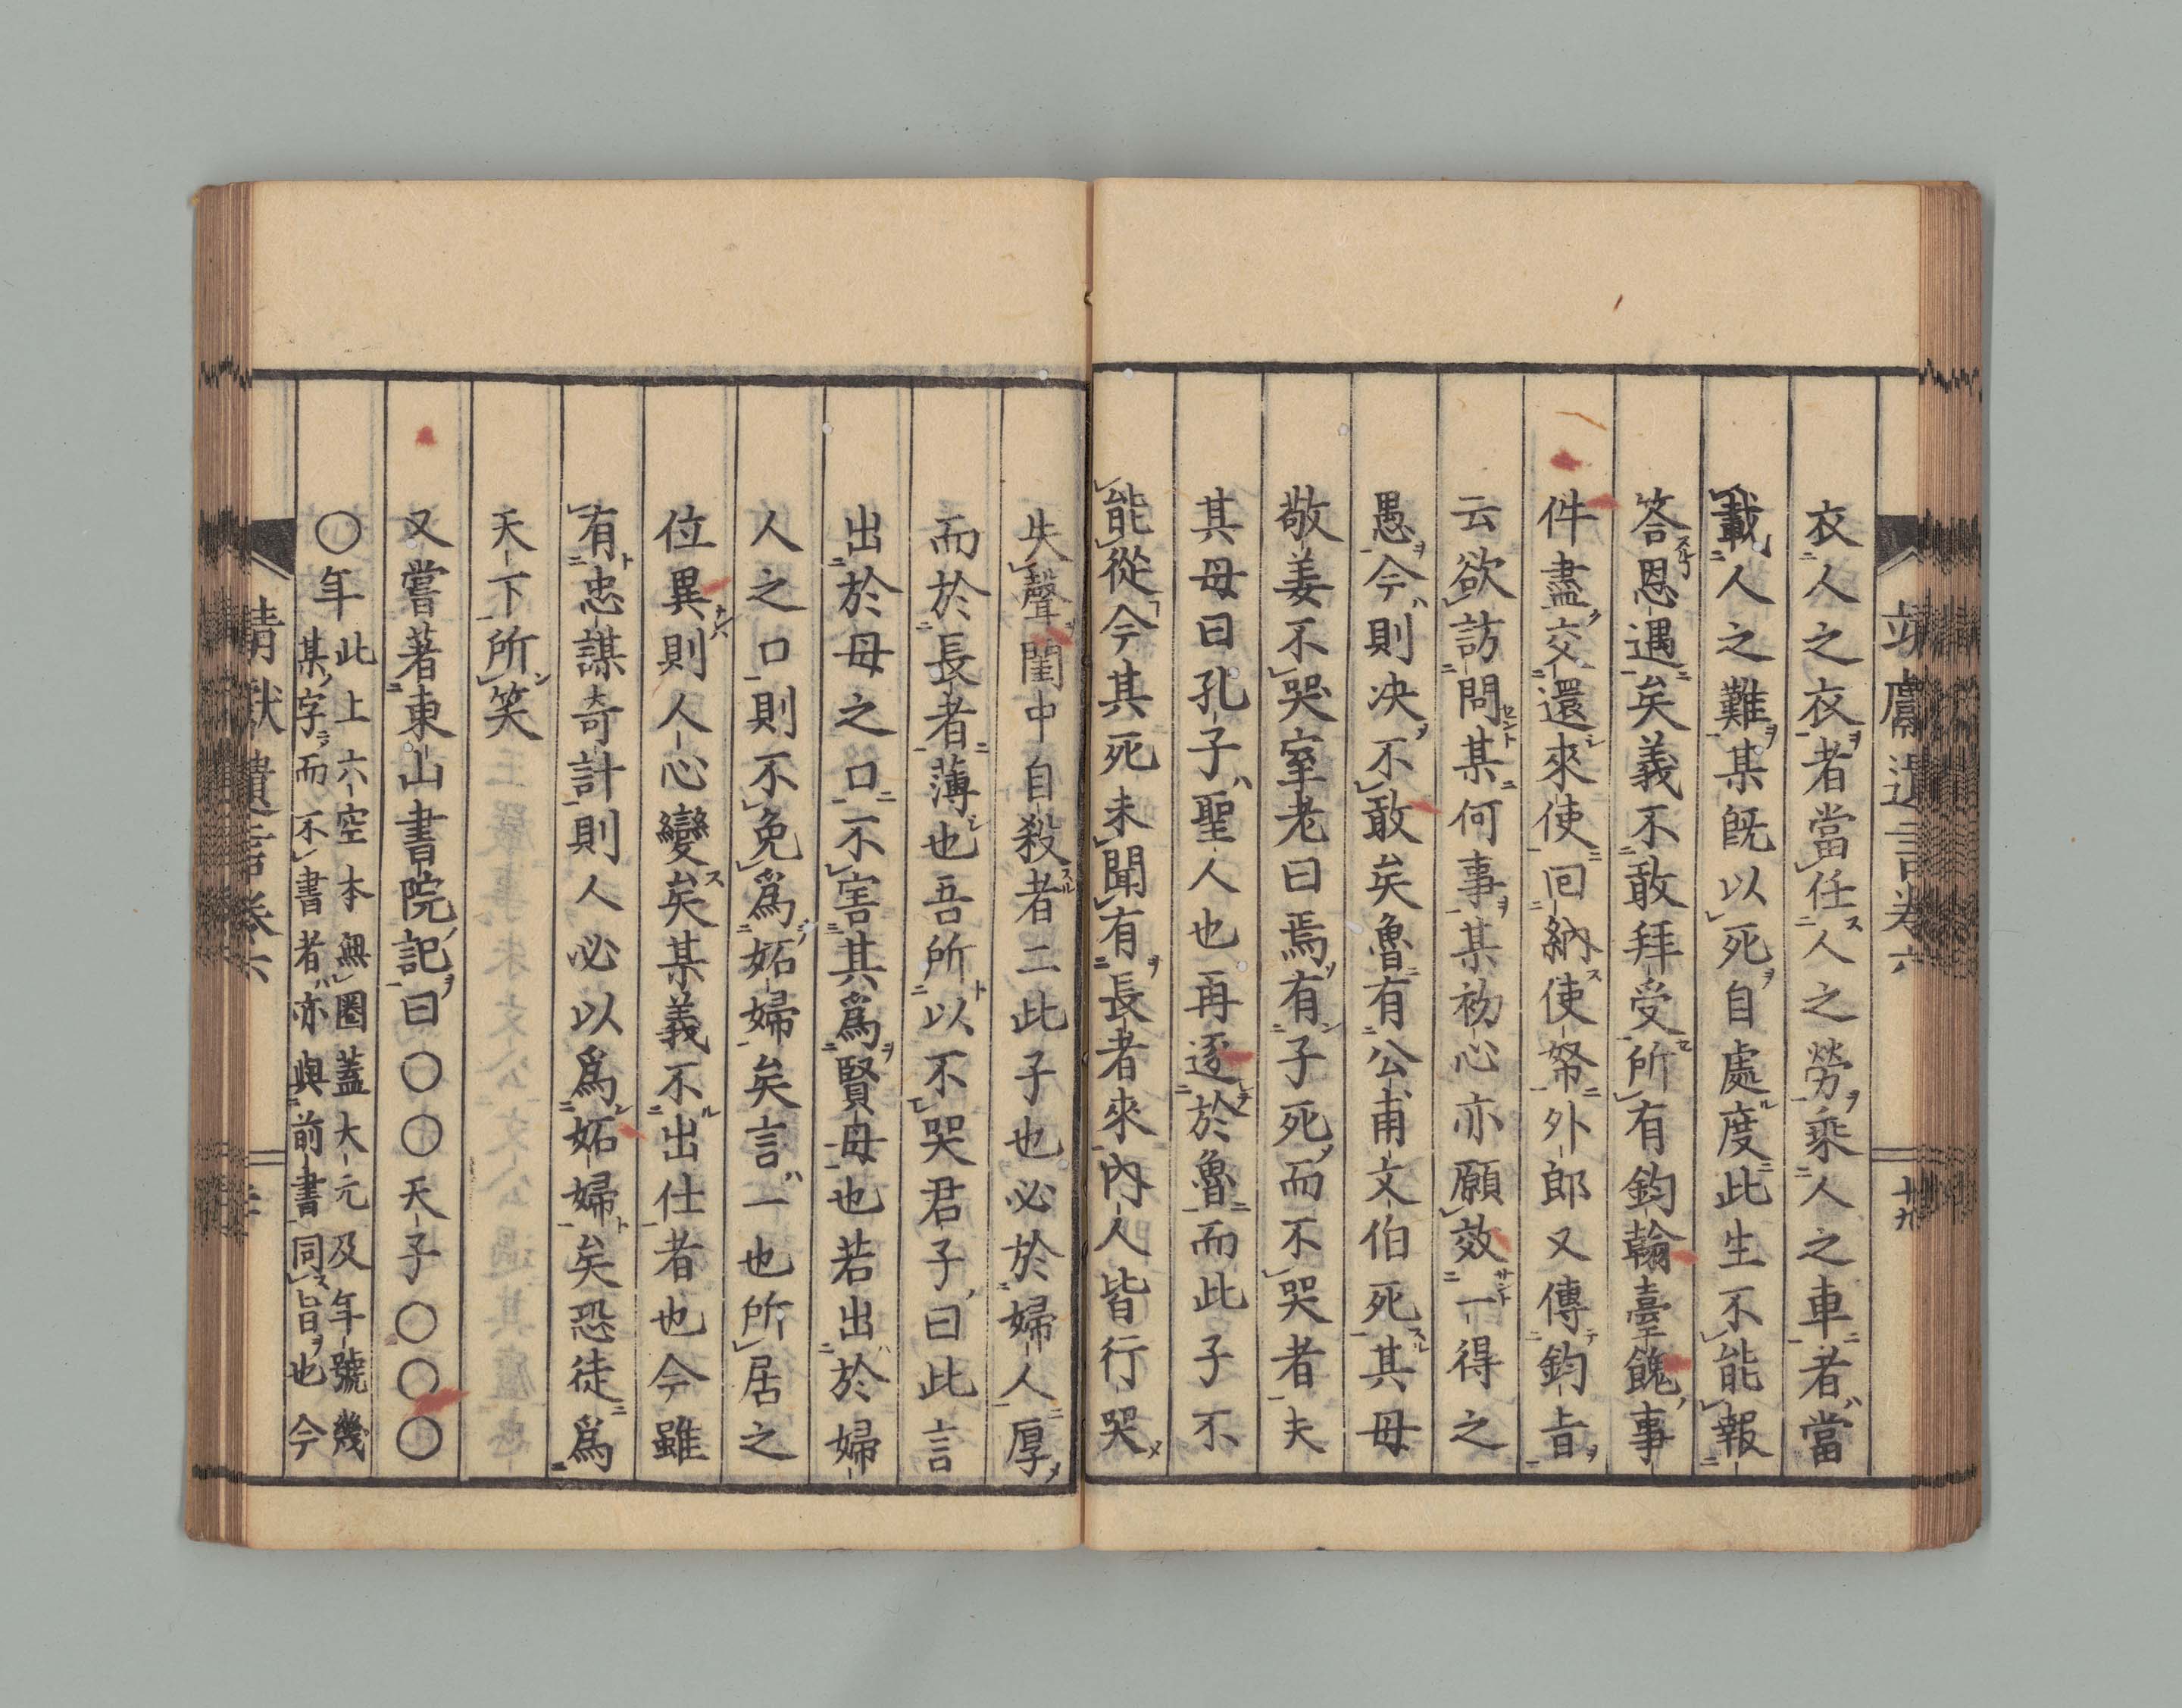 衣人之衣者當任人之勞乘人之車者當
載人之難某旣以死自處度此生不能報
答恩遇矣義不敢拜受所有鈞翰臺餽事
件盡交還來使回納使幣外郎又傳鈞旨
云欲訪問某何事某初心亦願效一得之
愚今則决不敢矣魯有公甫文伯死其母
敬姜不哭室老曰焉有子死而不哭者夫
其母曰孔子聖人也再逐於魯而此子不
能從今其死未聞有長者來內人皆行哭
失聲閨中自殺者二此子也必於婦人厚
而於長者薄也吾所以不哭君子曰此言
出於母之口不害其爲賢母也若出於婦
人之口則不免爲妬婦矣言一也所居之
位異則人心變矣某義不出仕者也今雖
有忠謀奇計則人必以爲妬婦矣恐徒爲
天下所笑
又嘗著東山書院記曰〇〇天子〇〇〇
〇年此上六空本無圈蓋大元及年號幾
某字而不書者亦與前書同旨也今